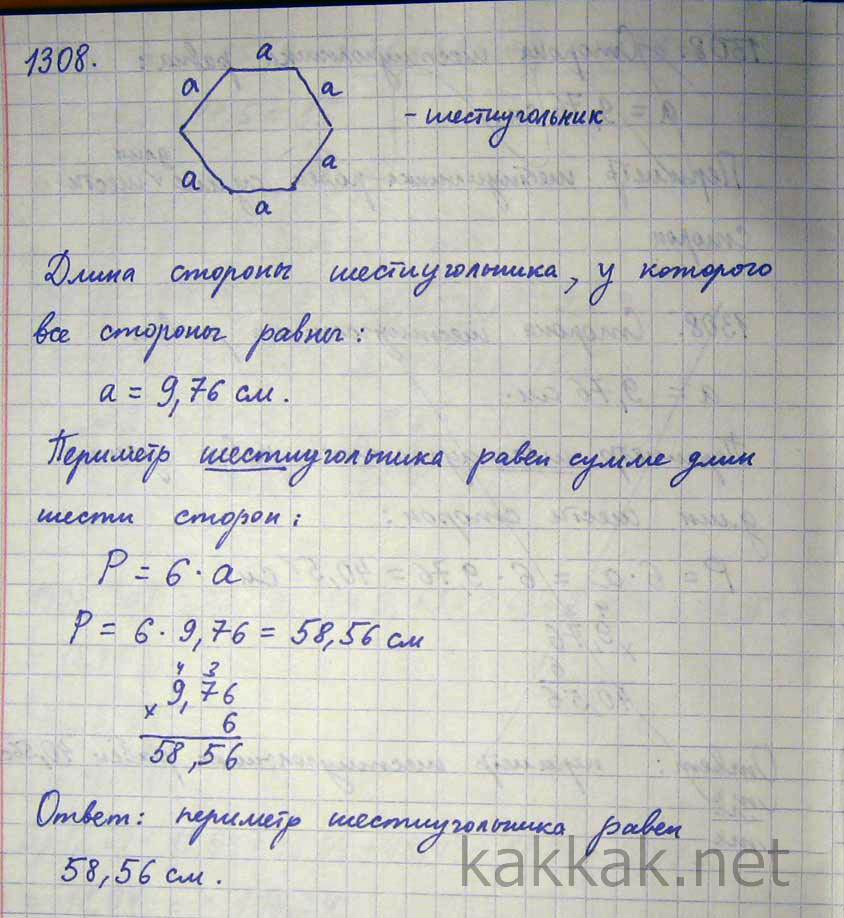 1308.
a
a a
- шестиугольник
a a
a
Длина стороны шестиугольника, у которого
все стороны равны:
a = 9,76 см.
Периметр шестиугольника равен сумме длин
шести сторон:
P = 6 · a
P = 6 · 9,76 = 58,56 см
4 3
9,76
× 6
58,56
Ответ: периметр шестиугольника равен
58,56 см.
kakkak.net